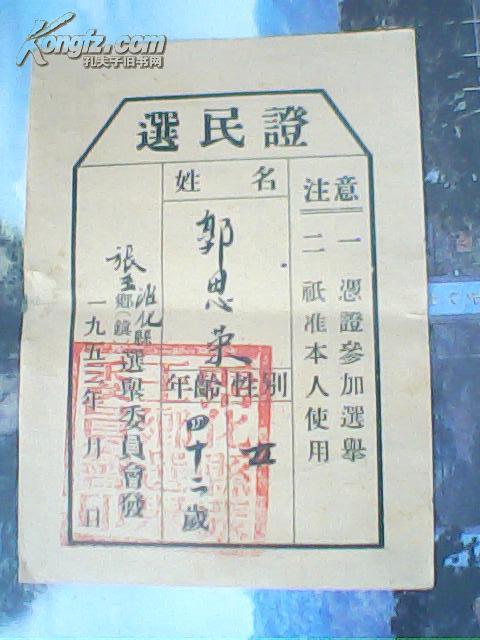 Kongfz.com
孔夫子旧书网
證民選
注意
一 憑證參加選舉
二 祇准本人使用
姓名
郭思英
性別
女
年齡
四十二歲
沾化縣
張王鄉(鎮)選舉委員會發
一九五三年 月 日